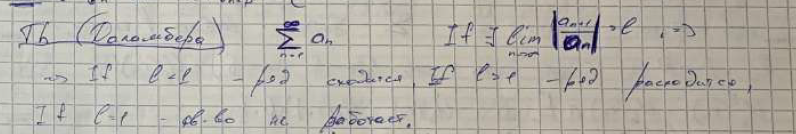 Th (Даламбера) ∑_{n=1}^{∞} a_n If ∃ lim_{n→∞} |a_{n+1}/a_n| = l, =>
=> If l < 1 - ряд сходится, If l > 1 - ряд расходится,
If l=1 - св-во не работает.